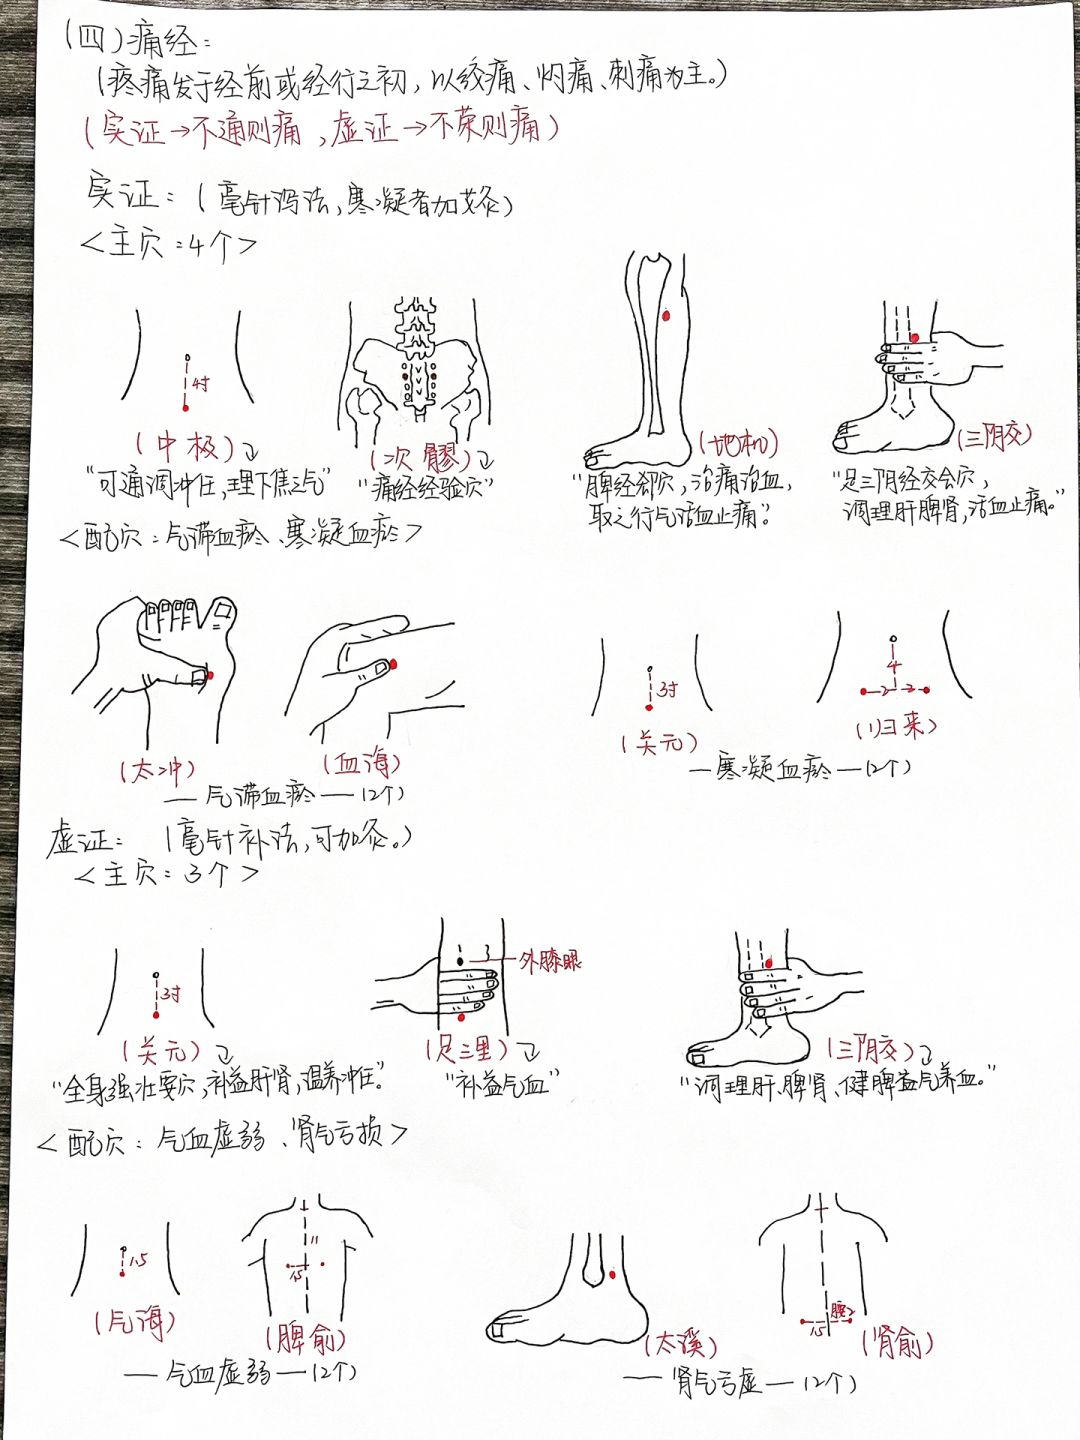 (四)痛经:
(疼痛发于经前或经行之初,以绞痛、灼痛、刺痛为主。)
(实证→不通则痛,虚证→不荣则痛)
实证:(毫针泻法,寒凝者加艾灸)
<主穴:4个>
4寸
(中极)
"可通调冲任,理下焦之气"
(次髎)
"痛经经验穴"
(地机)
"脾经郄穴,治痛治血,
取之行气活血止痛。"
(三阴交)
"足三阴经交会穴,
调理肝脾肾,活血止痛。"
<配穴:气滞血瘀、寒凝血瘀>
(太冲)
(血海)
—气滞血瘀—(2个)
3寸
(关元)
4
2 2
(归来)
—寒凝血瘀—(2个)
虚证:(毫针补法,可加灸。)
<主穴:3个>
3寸
(关元)
"全身强壮要穴,补益肝肾,温养冲任。"
3
外膝眼
(足三里)
"补益气血"
(三阴交)
"调理肝、脾肾、健脾益气养血。"
<配穴:气血虚弱、肾气亏损>
1.5
(气海)
11
1.5
(脾俞)
—气血虚弱—(2个)
(太溪)
腰2
1.5
(肾俞)
—肾气亏虚—(2个)